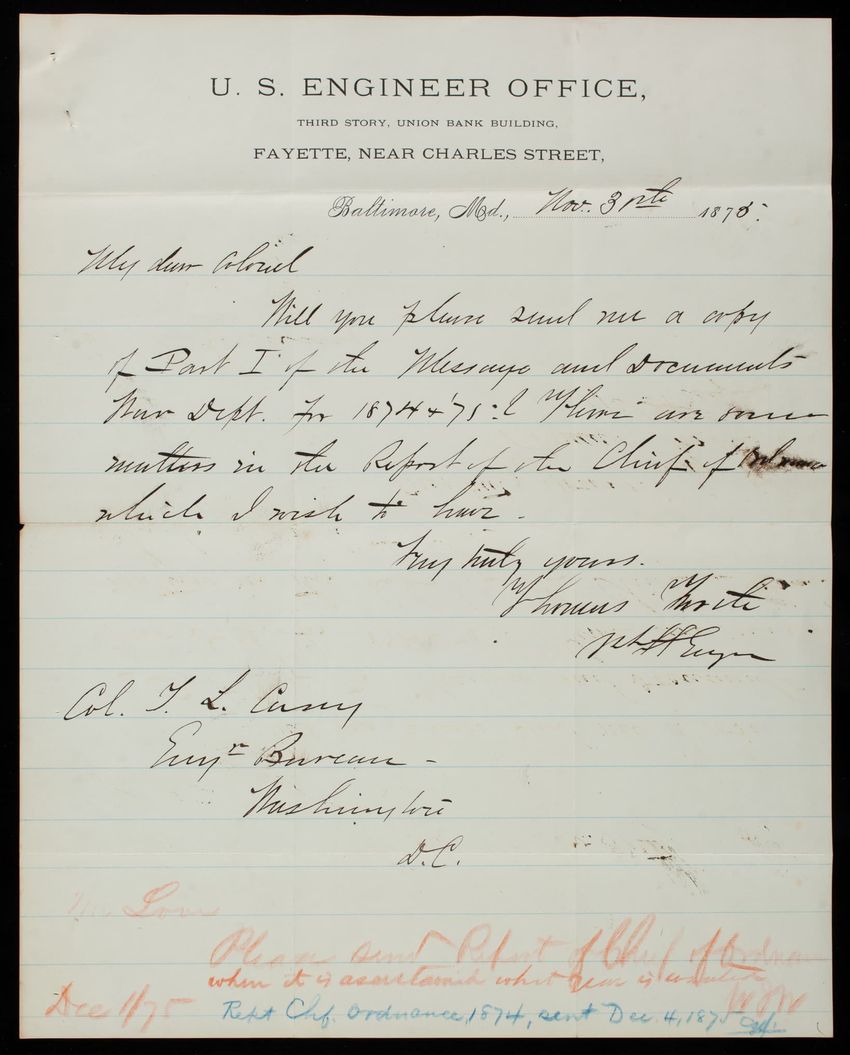 U. S. ENGINEER OFFICE,
THIRD STORY, UNION BANK BUILDING,
FAYETTE, NEAR CHARLES STREET,
Baltimore, Md., Nov. 30th 1875.
My dear Colonel
Will you please send me a copy
of Part I of the Message and Documents
War Dept. for 1874 & '75? There are some
matters in the Report of the Chief of
which I wish to have.
Very truly yours.
Thomas
Col. T. L. Casey
Engr Bureau -
Washington
D.C.
Please send Report of Chief of Ordnance
when it is ascertained what year is wanted
Dec 1/75
Rept Chf. Ordnance, 1874, sent Dec. 4, 1875